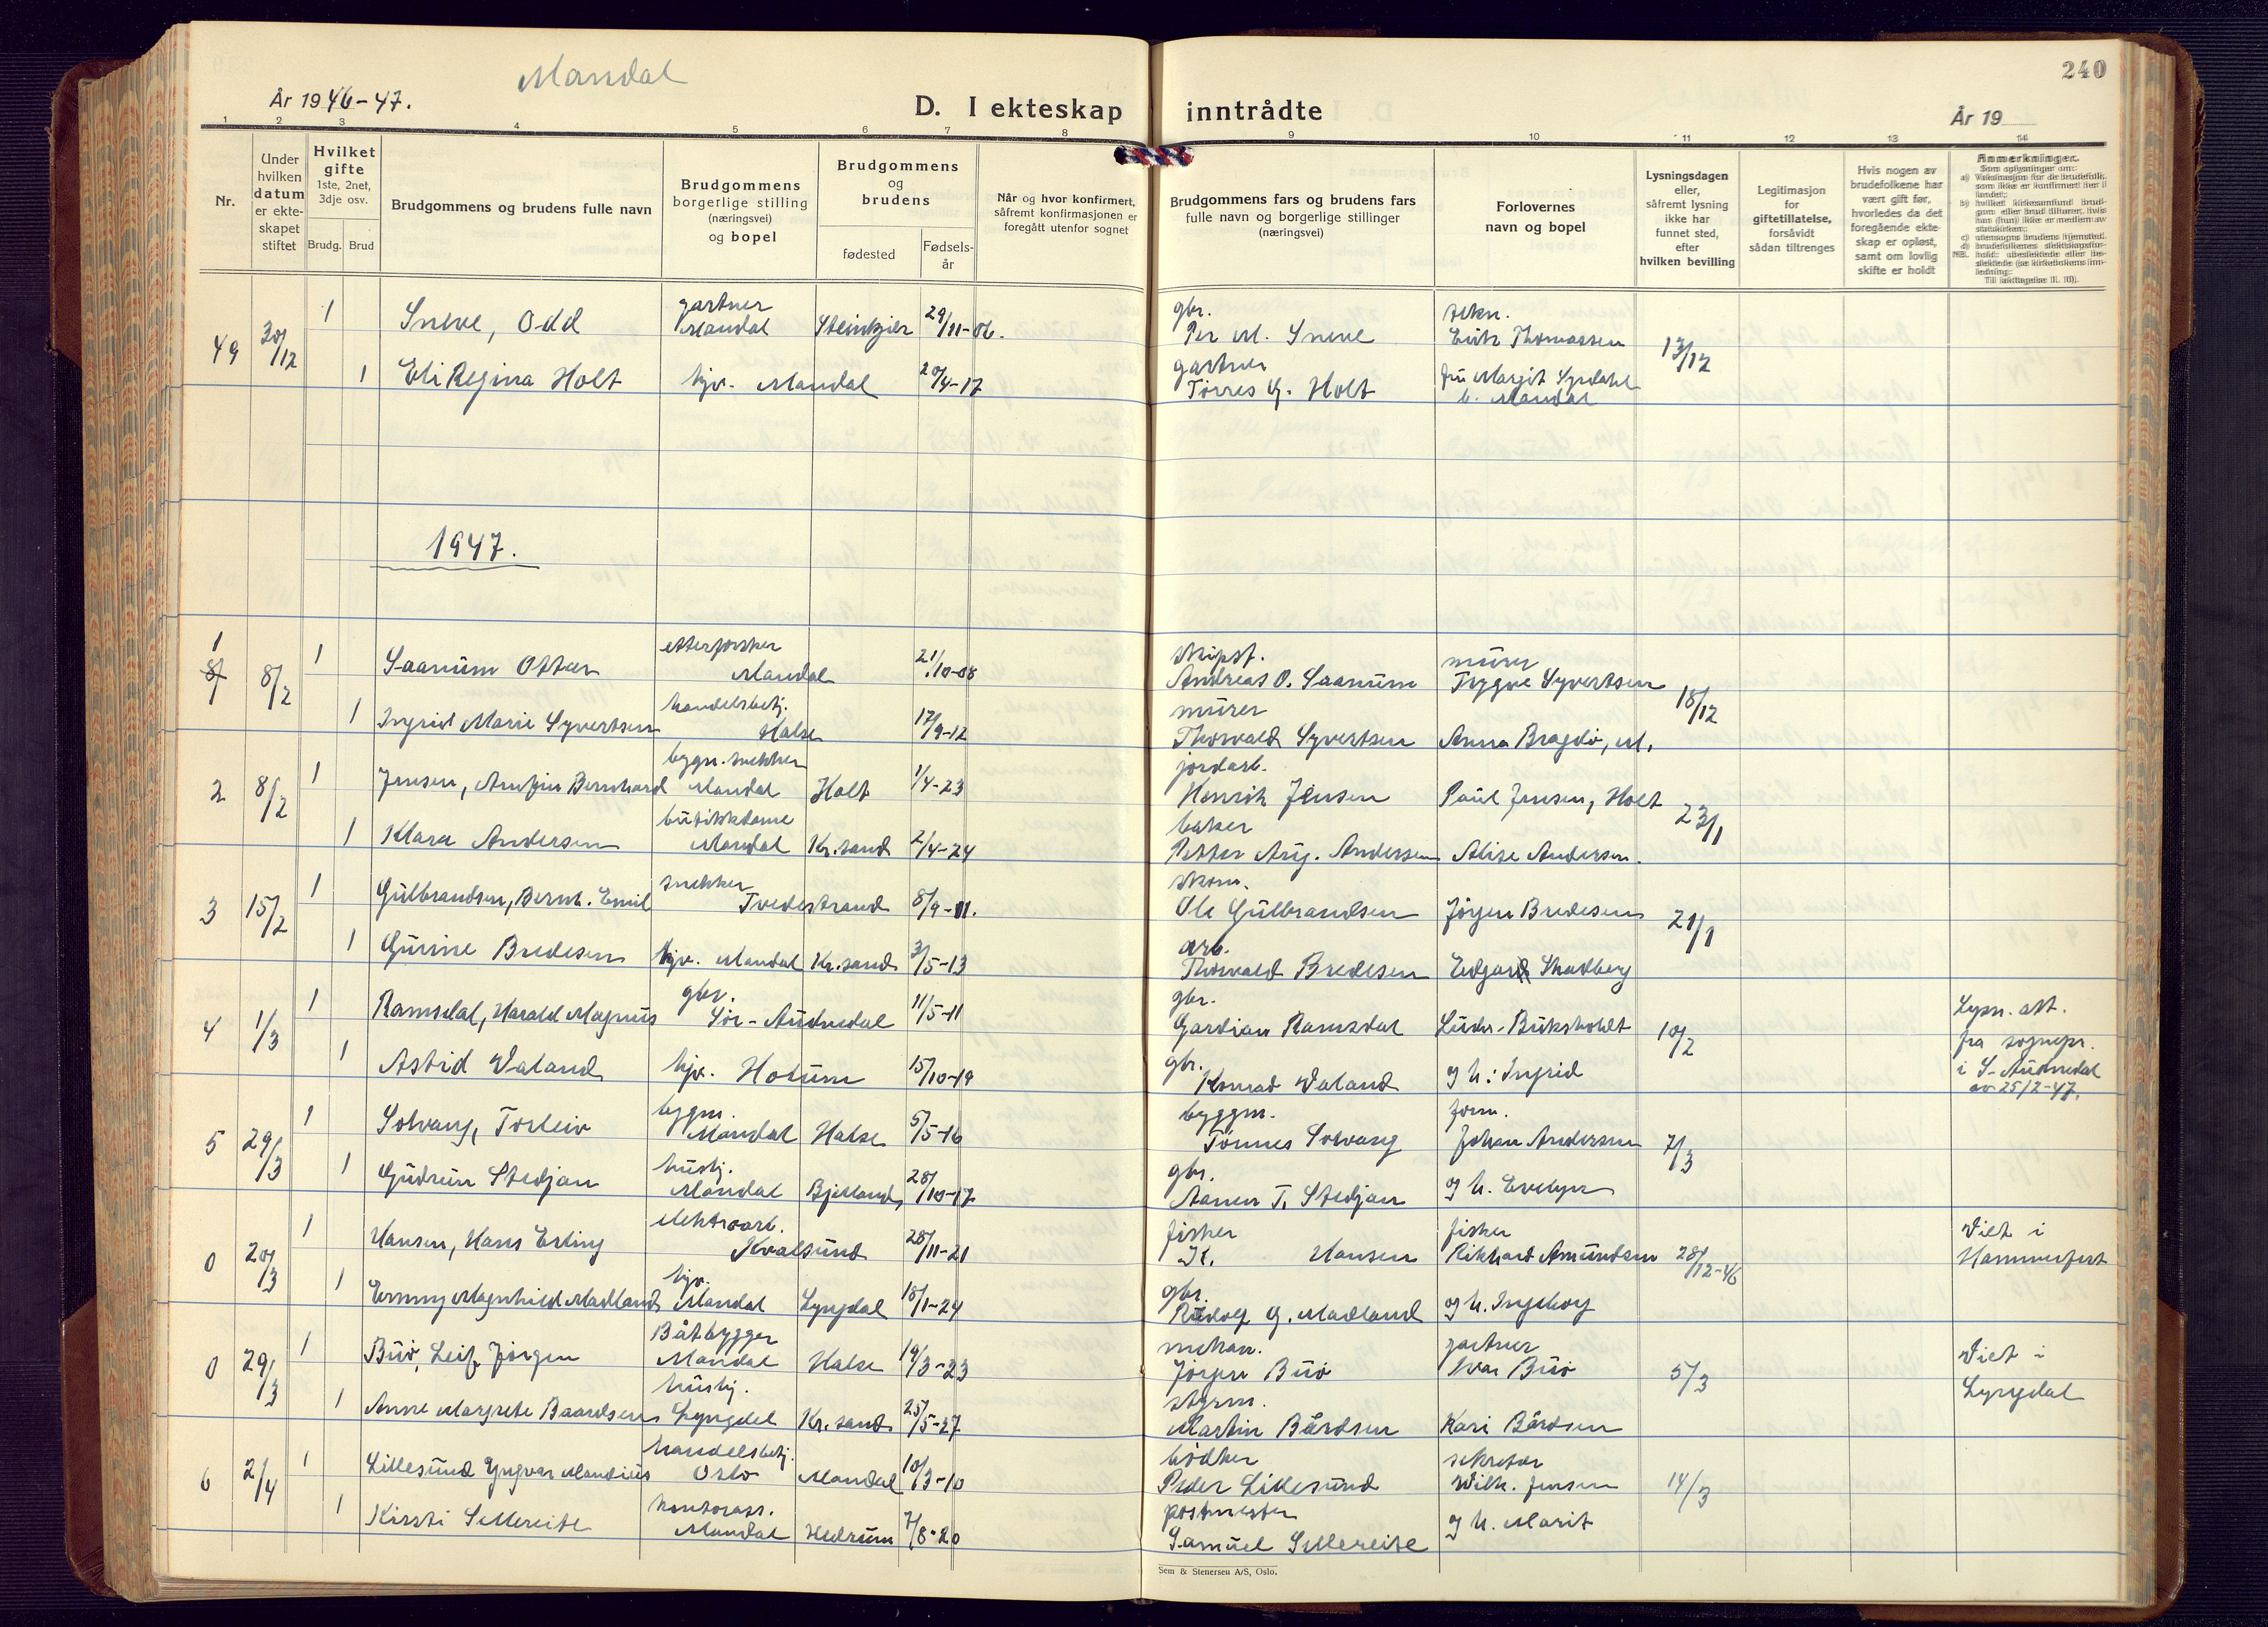 Mandal
240
År 1946-47.
D. I ekteskap inntrådte
År 19
1 2 3 4 5 6 7 8 9 10 11 12 13 14
Nr.
Under hvilken datum er ekteskapet stiftet
Hvilket gifte 1ste, 2net, 3dje osv.
Brudg. Brud
Brudgommens og brudens fulle navn
Brudgommens borgerlige stilling (næringsvei) og bopel
Brudgommens og brudens
fødested
Fødsels-år
Når og hvor konfirmert, såfremt konfirmasjonen er foregått utenfor sognet
Brudgommens fars og brudens fars fulle navn og borgerlige stillinger (næringsvei)
Forlovernes navn og bopel
Lysningsdagen eller, såfremt lysning ikke har funnet sted, efter hvilken bevilling
Legitimasjon for giftetillatelse, forsåvidt sådan tiltrenges
Hvis nogen av brudefolkene har vært gift før, hvorledes da det foregående ekteskap er opløst, samt om lovlig skifte er holdt
Anmerkninger.
49 30/12 1 Sneve, Odd gartner Mandal Steinkjer 29/11-06. gbr. Per M. Sneve sekr. Erik Thomassen 13/12
1 Eli Regina Holt hjv. Mandal 20/4-17 gartner Tørres G. Holt fru Margit Syrdahl b. Mandal
1947.
1 8/2 1 Saanum Ottar etterforsker Mandal 21/10-08 skipsf. Andreas O. Saanum murer Trygve Syvertsen 18/12
1 Ingrid Marie Syvertsen handelsbetj. Halse 17/9-12 murer Thorvald Syvertsen Anna Bragdø, M.
2 8/2 1 Jensen, Arnfin Bernhard bygn.snekker Mandal Holt 1/4-23 jordarb. Henrik Jensen Paul Jensen, Holt 23/1
1 Klara Andersen butikkdame Mandal Kr.sand 2/4-24 baker Petter Aug. Andersen Alise Andersen.
3 15/2 1 Gulbrandsen, Bernh. Emil snekker Tvedestrand 8/9-11. skom. Ole Gulbrandsen Jørgen Bredesen 21/1
1 Gurine Bredesen hjv. Mandal Kr.sand 3/5-13 arb. Thorvald Bredesen Edgard Skadberg
4 1/3 1 Ramsdal, Harald Magnus gbr. Sør-Audnedal 11/5-11 gbr. Gardian Ramsdal Luder Buksholdt 10/2 Lysn. att. fra sognepr. i S-Audnedal av 25/2-47.
1 Astrid Valand hjv. Holum 15/10-19 gbr. Konrad Valand og h: Ingrid
5 29/3 1 Solvang, Torleiv bygm. Mandal Halse 5/5-16 byggm. Tønnes Solvang form. Johan Andersen 7/3
1 Gudrun Stedjan hushj. Mandal Bjelland, 28/10-17 gbr. Aanen T. Stedjan og h. Evelyn
0 20/3 1 Hansen, Hans Erling elektroarb. Kvalsund 28/11-21 fisker K. Hansen fisker Rikhard Amundsen 28/12-46 Viet i Hammerfest
1 Emmy Magnhild Madland hjv. Mandal Lyngdal 18/1-24 gbr. Rudolf G. Madland og h. Ingeborg
0 29/3 1 Buø, Leif Jørgen Båtbygger Mandal Halse 19/3-23 mekan. Jørgen Buø gartner Ivar Buø 5/3 Viet i Lyngdal
1 Anne Margrete Baardsen hushj. Lyngdal Kr.sand 25/5-27 styrm. Martin Bårdsen Kari Bårdsen
6 2/4 1 Lillesund Yngvar Mandius handelsbetj. Oslo Mandal 10/3-10 bødker Peder Lillesund sekretær Wilh. Jensen 14/3
1 Kirsti Sellereite kontorass. Mandal Hedrum 7/8-20 postmester Samuel Sellereite og h. Marit
Sem & Stenersen A/S, Oslo.